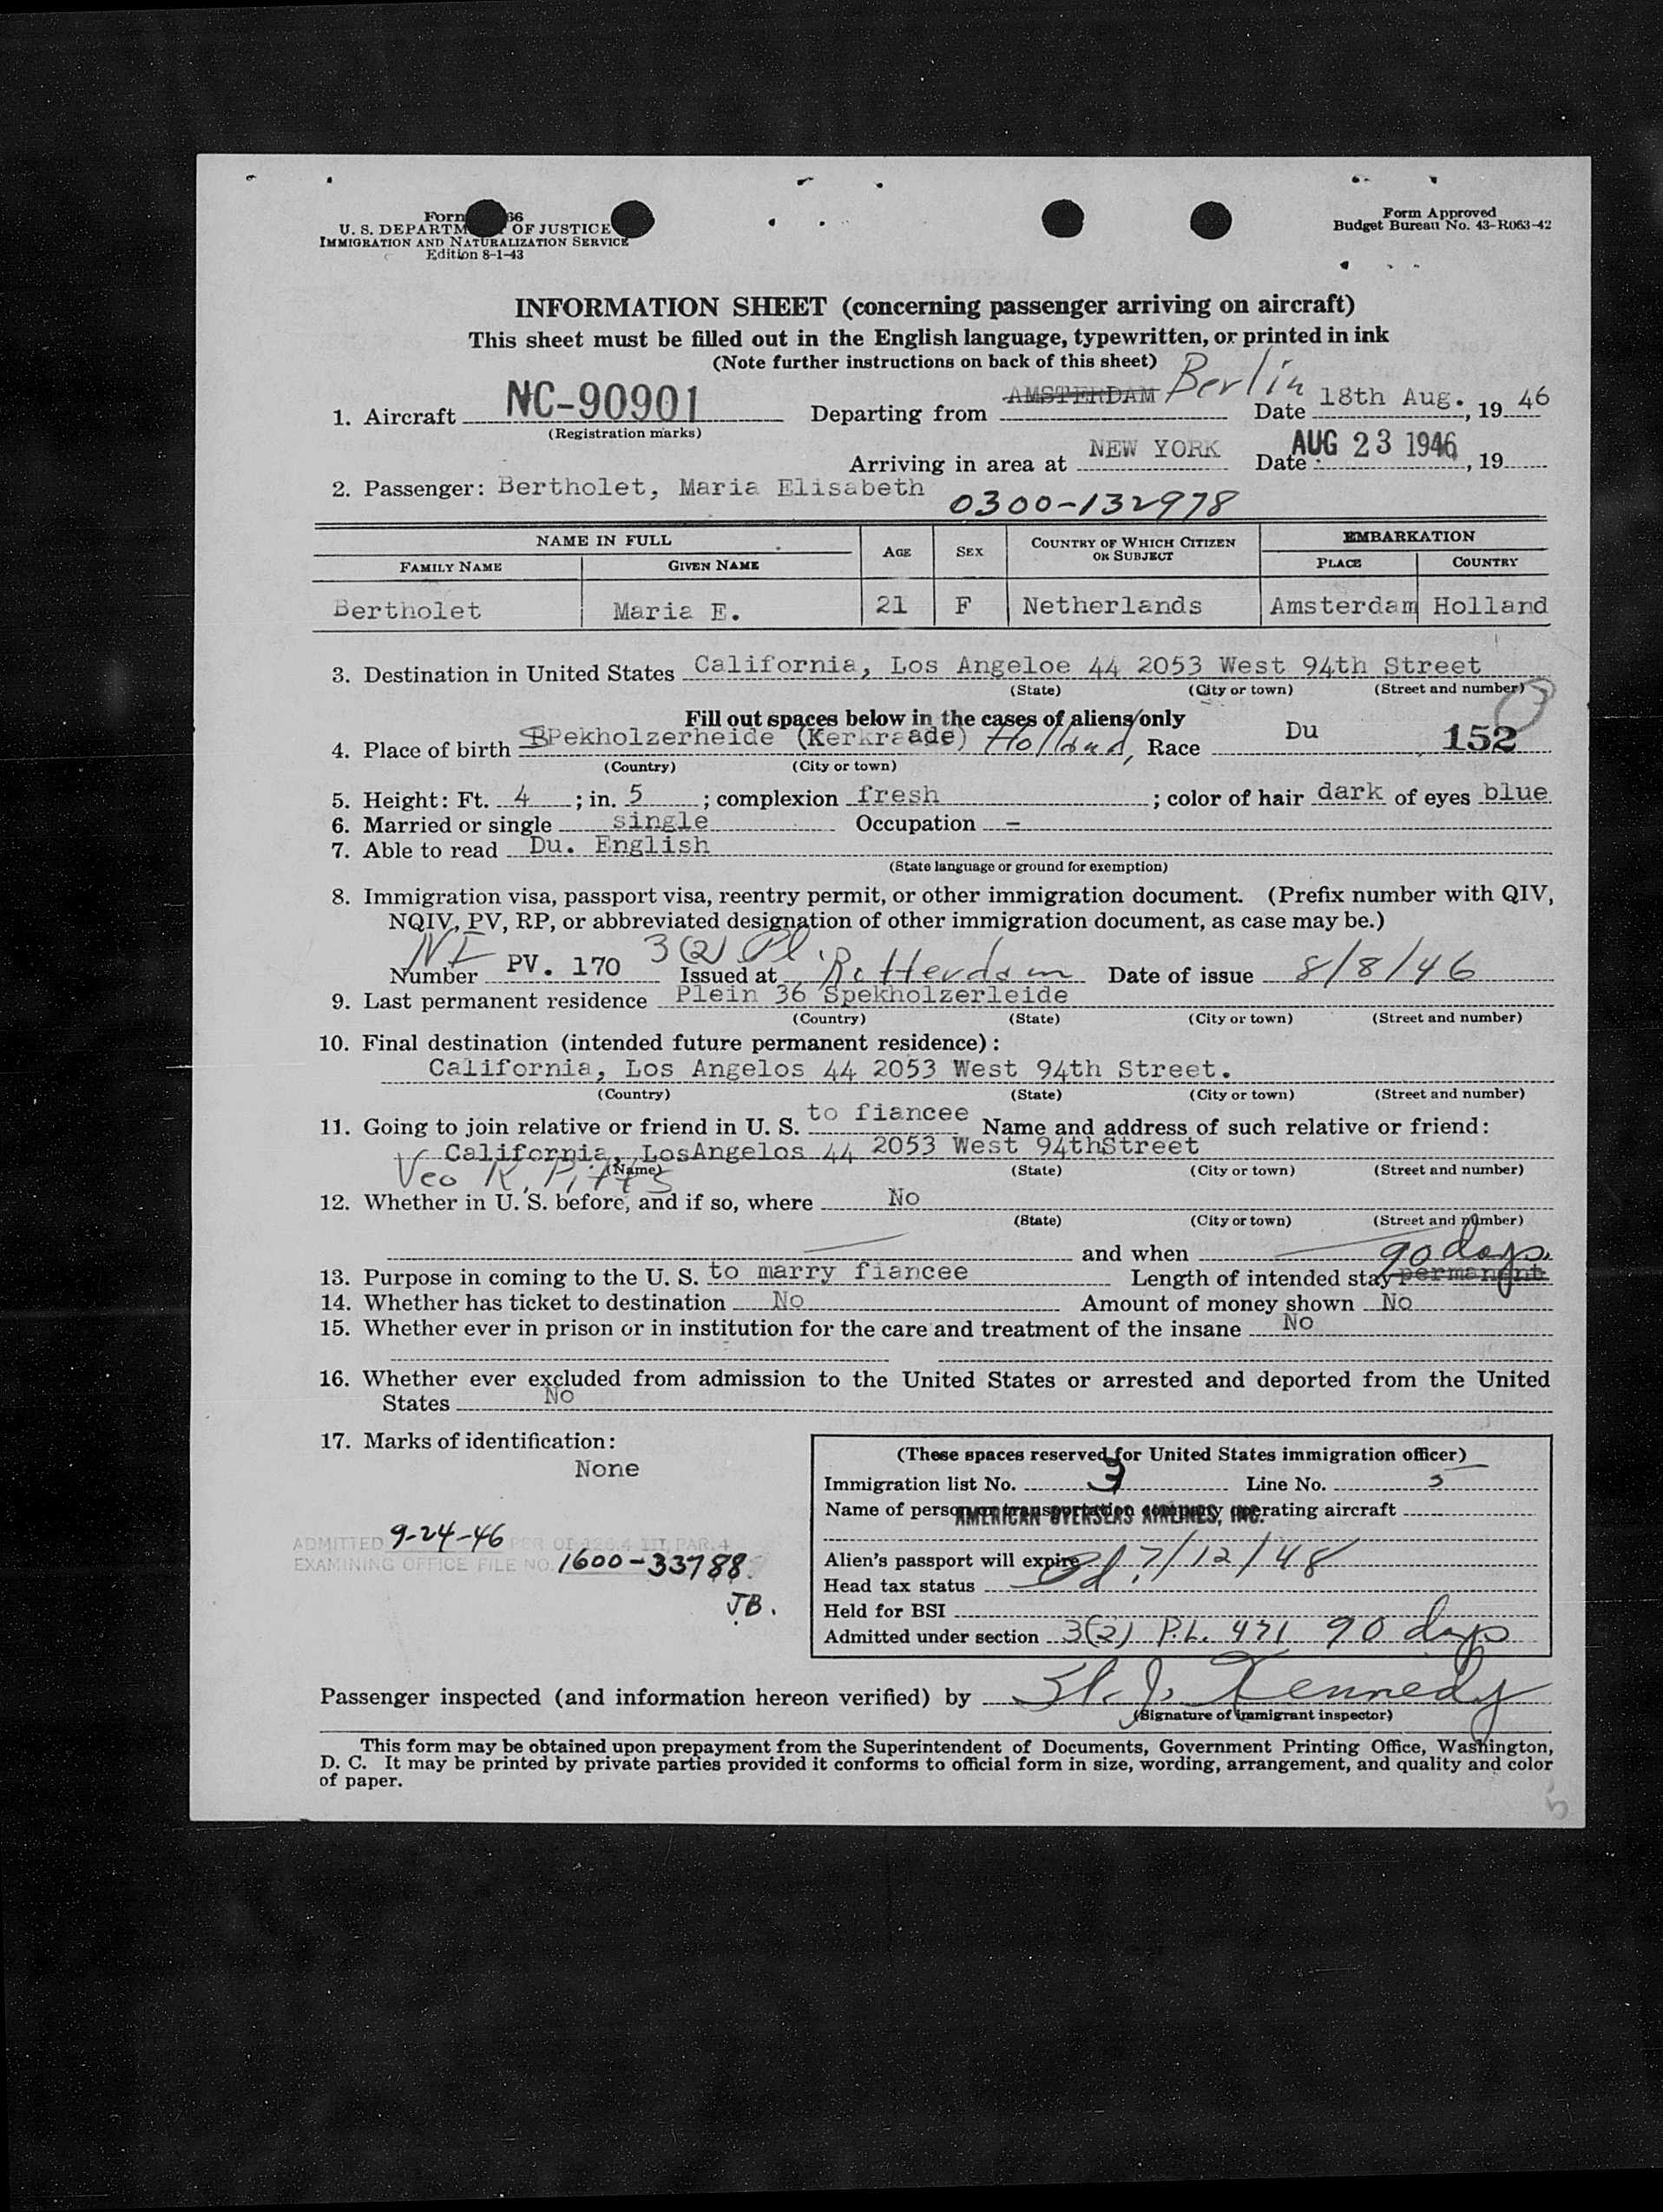 Form 66
U. S. DEPARTM OF JUSTICE
IMMIGRATION AND NATURALIZATION SERVICE
Edition 8-1-43
Form Approved
Budget Bureau No. 43-R063-42
INFORMATION SHEET (concerning passenger arriving on aircraft)
This sheet must be filled out in the English language, typewritten, or printed in ink
(Note further instructions on back of this sheet)
1. Aircraft NC-90901 Departing from AMSTERDAM Berlin Date 18th Aug., 19 46
(Registration marks)
Arriving in area at NEW YORK Date AUG 23 1946, 19
2. Passenger: Bertholet, Maria Elisabeth 0300-132978
NAME IN FULL AGE SEX COUNTRY OF WHICH CITIZEN OR SUBJECT EMBARKATION
FAMILY NAME GIVEN NAME PLACE COUNTRY
Bertholet Maria E. 21 F Netherlands Amsterdam Holland
3. Destination in United States California, Los Angeloe 44 2053 West 94th Street
(State) (City or town) (Street and number)
Fill out spaces below in the cases of aliens only
4. Place of birth SPekholzerheide (Kerkraade) Holland, Race Du 152
(Country) (City or town)
5. Height: Ft. 4 ; in. 5 ; complexion fresh ; color of hair dark of eyes blue
6. Married or single single Occupation –
7. Able to read Du. English
(State language or ground for exemption)
8. Immigration visa, passport visa, reentry permit, or other immigration document. (Prefix number with QIV,
NQIV, PV, RP, or abbreviated designation of other immigration document, as case may be.)
Number PV. 170 3(2) Pl. Issued at Rotterdam Date of issue 8/8/46
9. Last permanent residence Plein 36 Spekholzerleide
(Country) (State) (City or town) (Street and number)
10. Final destination (intended future permanent residence):
California, Los Angelos 44 2053 West 94th Street.
(Country) (State) (City or town) (Street and number)
11. Going to join relative or friend in U. S. to fiancee Name and address of such relative or friend:
California, LosAngelos 44 2053 West 94thStreet
Veo K. Pitts (Name) (State) (City or town) (Street and number)
12. Whether in U. S. before, and if so, where No
(State) (City or town) (Street and number)
and when 90 days.
13. Purpose in coming to the U. S. to marry fiancee Length of intended stay permanent
14. Whether has ticket to destination No Amount of money shown No
15. Whether ever in prison or in institution for the care and treatment of the insane No
16. Whether ever excluded from admission to the United States or arrested and deported from the United
States No
17. Marks of identification:
None
(These spaces reserved for United States immigration officer)
Immigration list No. 3 Line No. 5
Name of person or transportation company operating aircraft
AMERICAN OVERSEAS AIRLINES, INC.
Alien's passport will expire 7/12/48
Head tax status
Held for BSI
Admitted under section 3(2) P.L. 471 90 days
ADMITTED 9-24-46 PER OI 126.4 III, PAR. 4
EXAMINING OFFICE FILE NO. 1600-33788.
JB.
Passenger inspected (and information hereon verified) by Kennedy
(Signature of immigrant inspector)
This form may be obtained upon prepayment from the Superintendent of Documents, Government Printing Office, Washington,
D. C. It may be printed by private parties provided it conforms to official form in size, wording, arrangement, and quality and color
of paper.
5